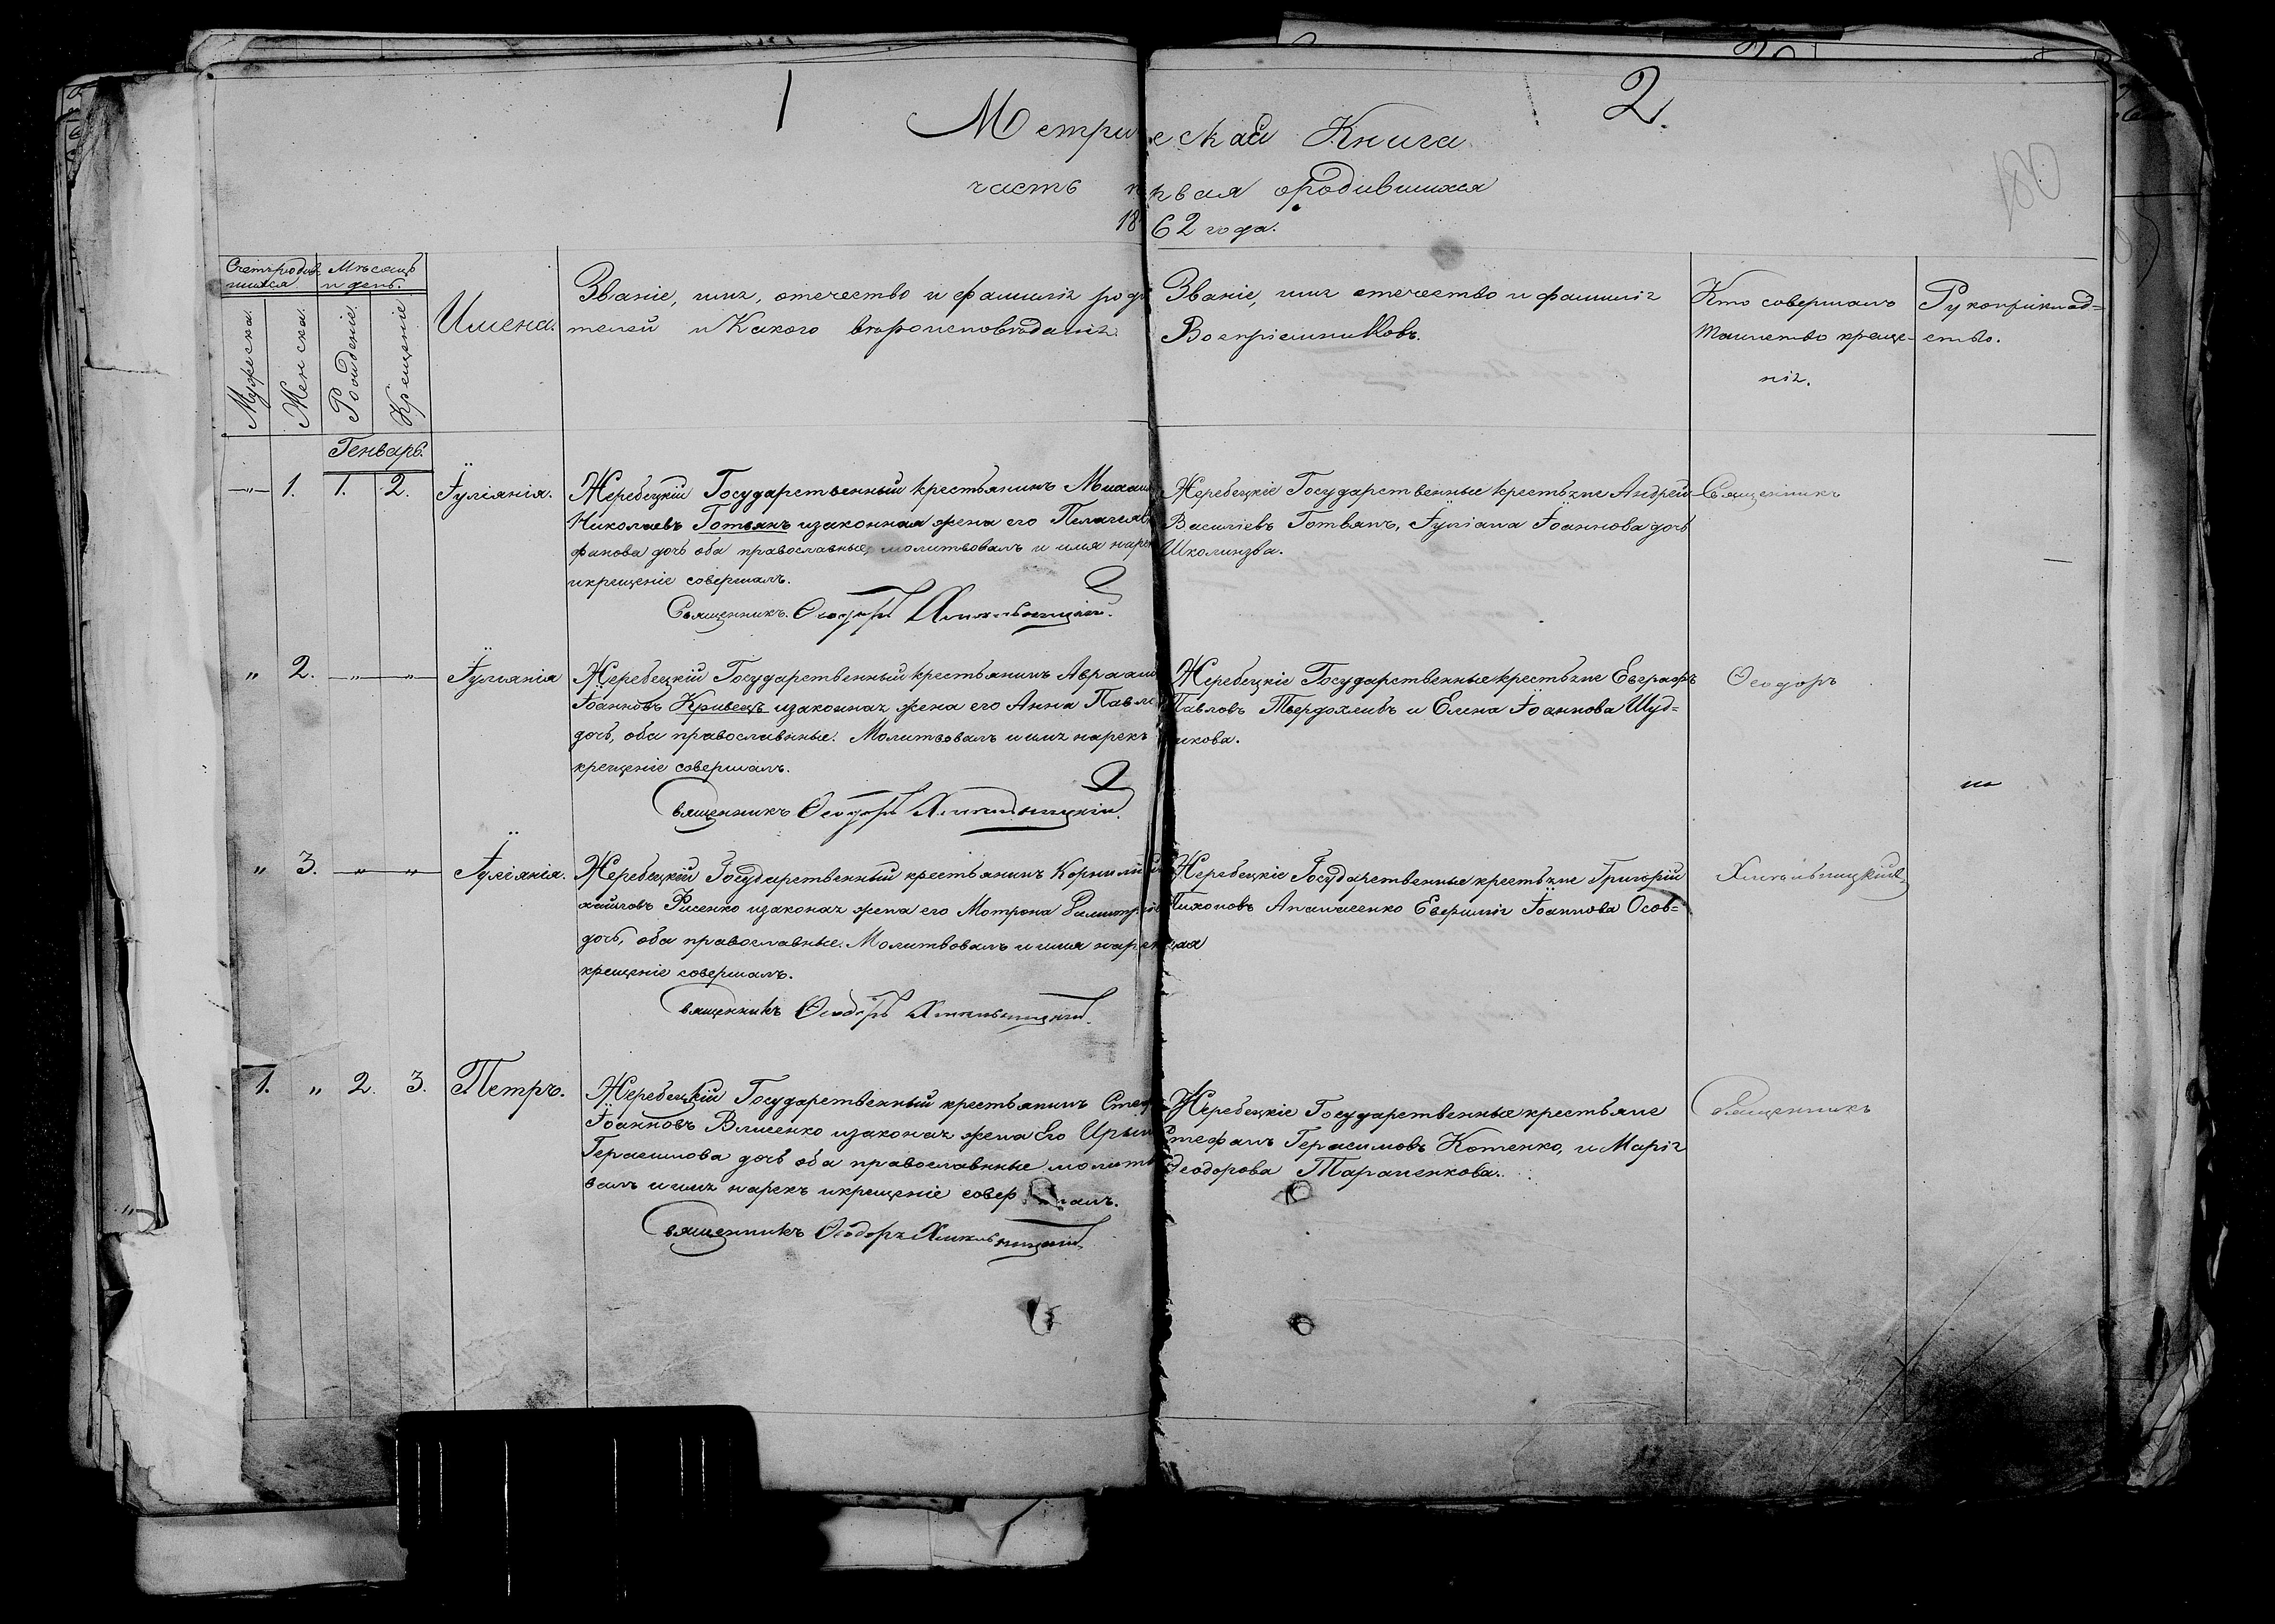 1
2.
Метрическая Книга
часть первая о родившихся
1862 года.
180
Счетъ родив-
шихся.
Мѣсяцъ
и день.
Мужеска.
Женска.
Рожденіе.
Крещеніе
Имена.
Званіе, имя, отечество и фамилія роди
телей и Какого вѣроисповѣданія.
Званіе, имя отечество и фамилія
Воспріемниковъ.
Кто совершалъ
таинство креще-
нія.
Рукоприклад-
ство.
Генварь.
—"— 1. 1. 2. Іуліанія.
Жеребецкій Государственный крестьянинъ Михаилъ
Николаевъ Готвянъ и законная жена его Пелагея
фанова дочь оба православные, молитвовалъ и имя нарекъ
и крещеніе совершалъ.
Священникъ. Ѳеодоръ Хмѣльницкій.
Жеребецкіе Государственные крестьяне Андрей
Василіевъ Готвянъ, Іуліана Іоаннова дочь
Священникъ
" 2. —"— —"— Іуліанія
Жеребецкій Государственный крестьянинъ Авраам
Іоанновъ Кривецъ и законная жена его Анна Павл
дочь, оба православные. Молитвовалъ и имя нарекъ
крещеніе совершалъ.
Священникъ Ѳеодоръ Хмѣльницкій.
Жеребецкіе Государственные крестьяне Евграфъ
Павловъ Твердохлебъ и Елена Іоаннова Шуд=
икова.
Ѳеодоръ
" 3. —"— —"— Іуліанія.
Жеребецкій Государственный крестьянинъ Корнилій
хайловъ Рисенко и законая жена его Мотрона Димитріе
дочь, оба православные. Молитвовалъ и имя наре
крещеніе совершалъ.
Священникъ Ѳеодоръ Хмѣльницкій.
Жеребецкіе Государственные крестьяне Григорій
Тихоновъ Апанасенко Іоаннова Осов=
цкая
Хмѣльницкій
1. " 2. 3. Петръ.
Жеребецкій Государственный крестьянинъ Стеф
Іоанновъ Власенко и законая жена Его Ирын
Герасимова дочь оба православные молитво
валъ и имя нарекъ и крещеніе совершалъ.
Священникъ Ѳеодоръ Хмѣльницкій
Жеребецкіе Государственные крестьяне
Стефанъ Герасимовъ Котенко, и Марія
Ѳеодорова Тараненкова.
Священникъ